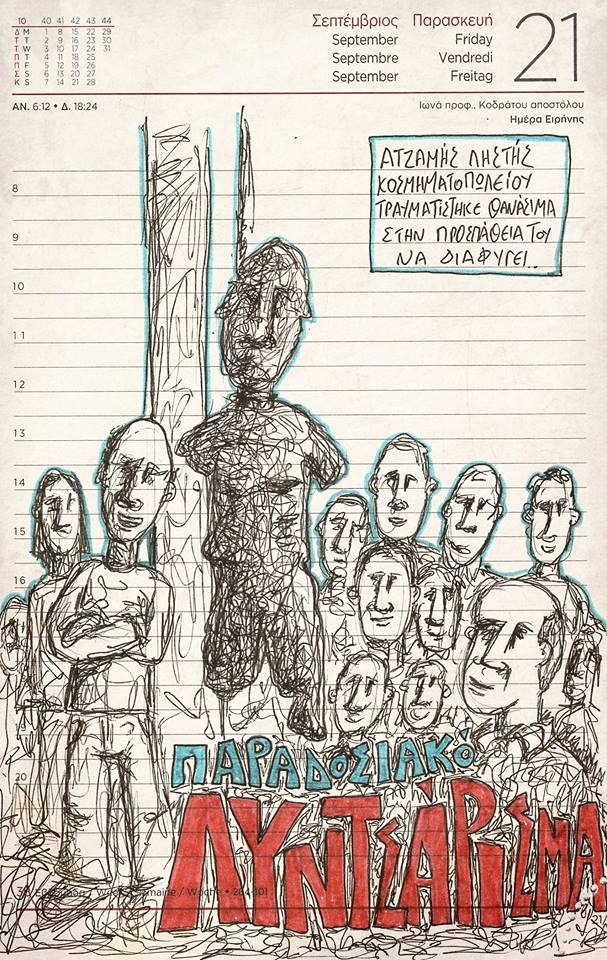 10 40 41 42 43 44
Δ M 1 8 15 22 29
Τ T 2 9 16 23 30
Τ W 3 10 17 24 31
Π T 4 11 18 25
Π F 5 12 19 26
Σ S 6 13 20 27
Κ S 7 14 21 28
Σεπτέμβριος Παρασκευή
September Friday
Septembre Vendredi
September Freitag
21
ΑΝ. 6:12 • Δ. 18:24
Ιωνά προφ., Κοδράτου αποστόλου
Ημέρα Ειρήνης
ΑΤΖΑΜΗΣ ΛΗΣΤΗΣ
ΚΟΣΜΗΜΑΤΟΠΩΛΕΙΟΥ
ΤΡΑΥΜΑΤΙΣΤΗΚΕ ΘΑΝΑΣΙΜΑ
ΣΤΗΝ ΠΡΟΣΠΑΘΕΙΑ ΤΟΥ
ΝΑ ΔΙΑΦΥΓΕΙ..
8
9
10
11
12
13
14
15
16
19
20
ΠΑΡΑΔΟΣΙΑΚΟ
ΛΥΝΤΣΑΡΙΣΜΑ
/ Woche • 264-101